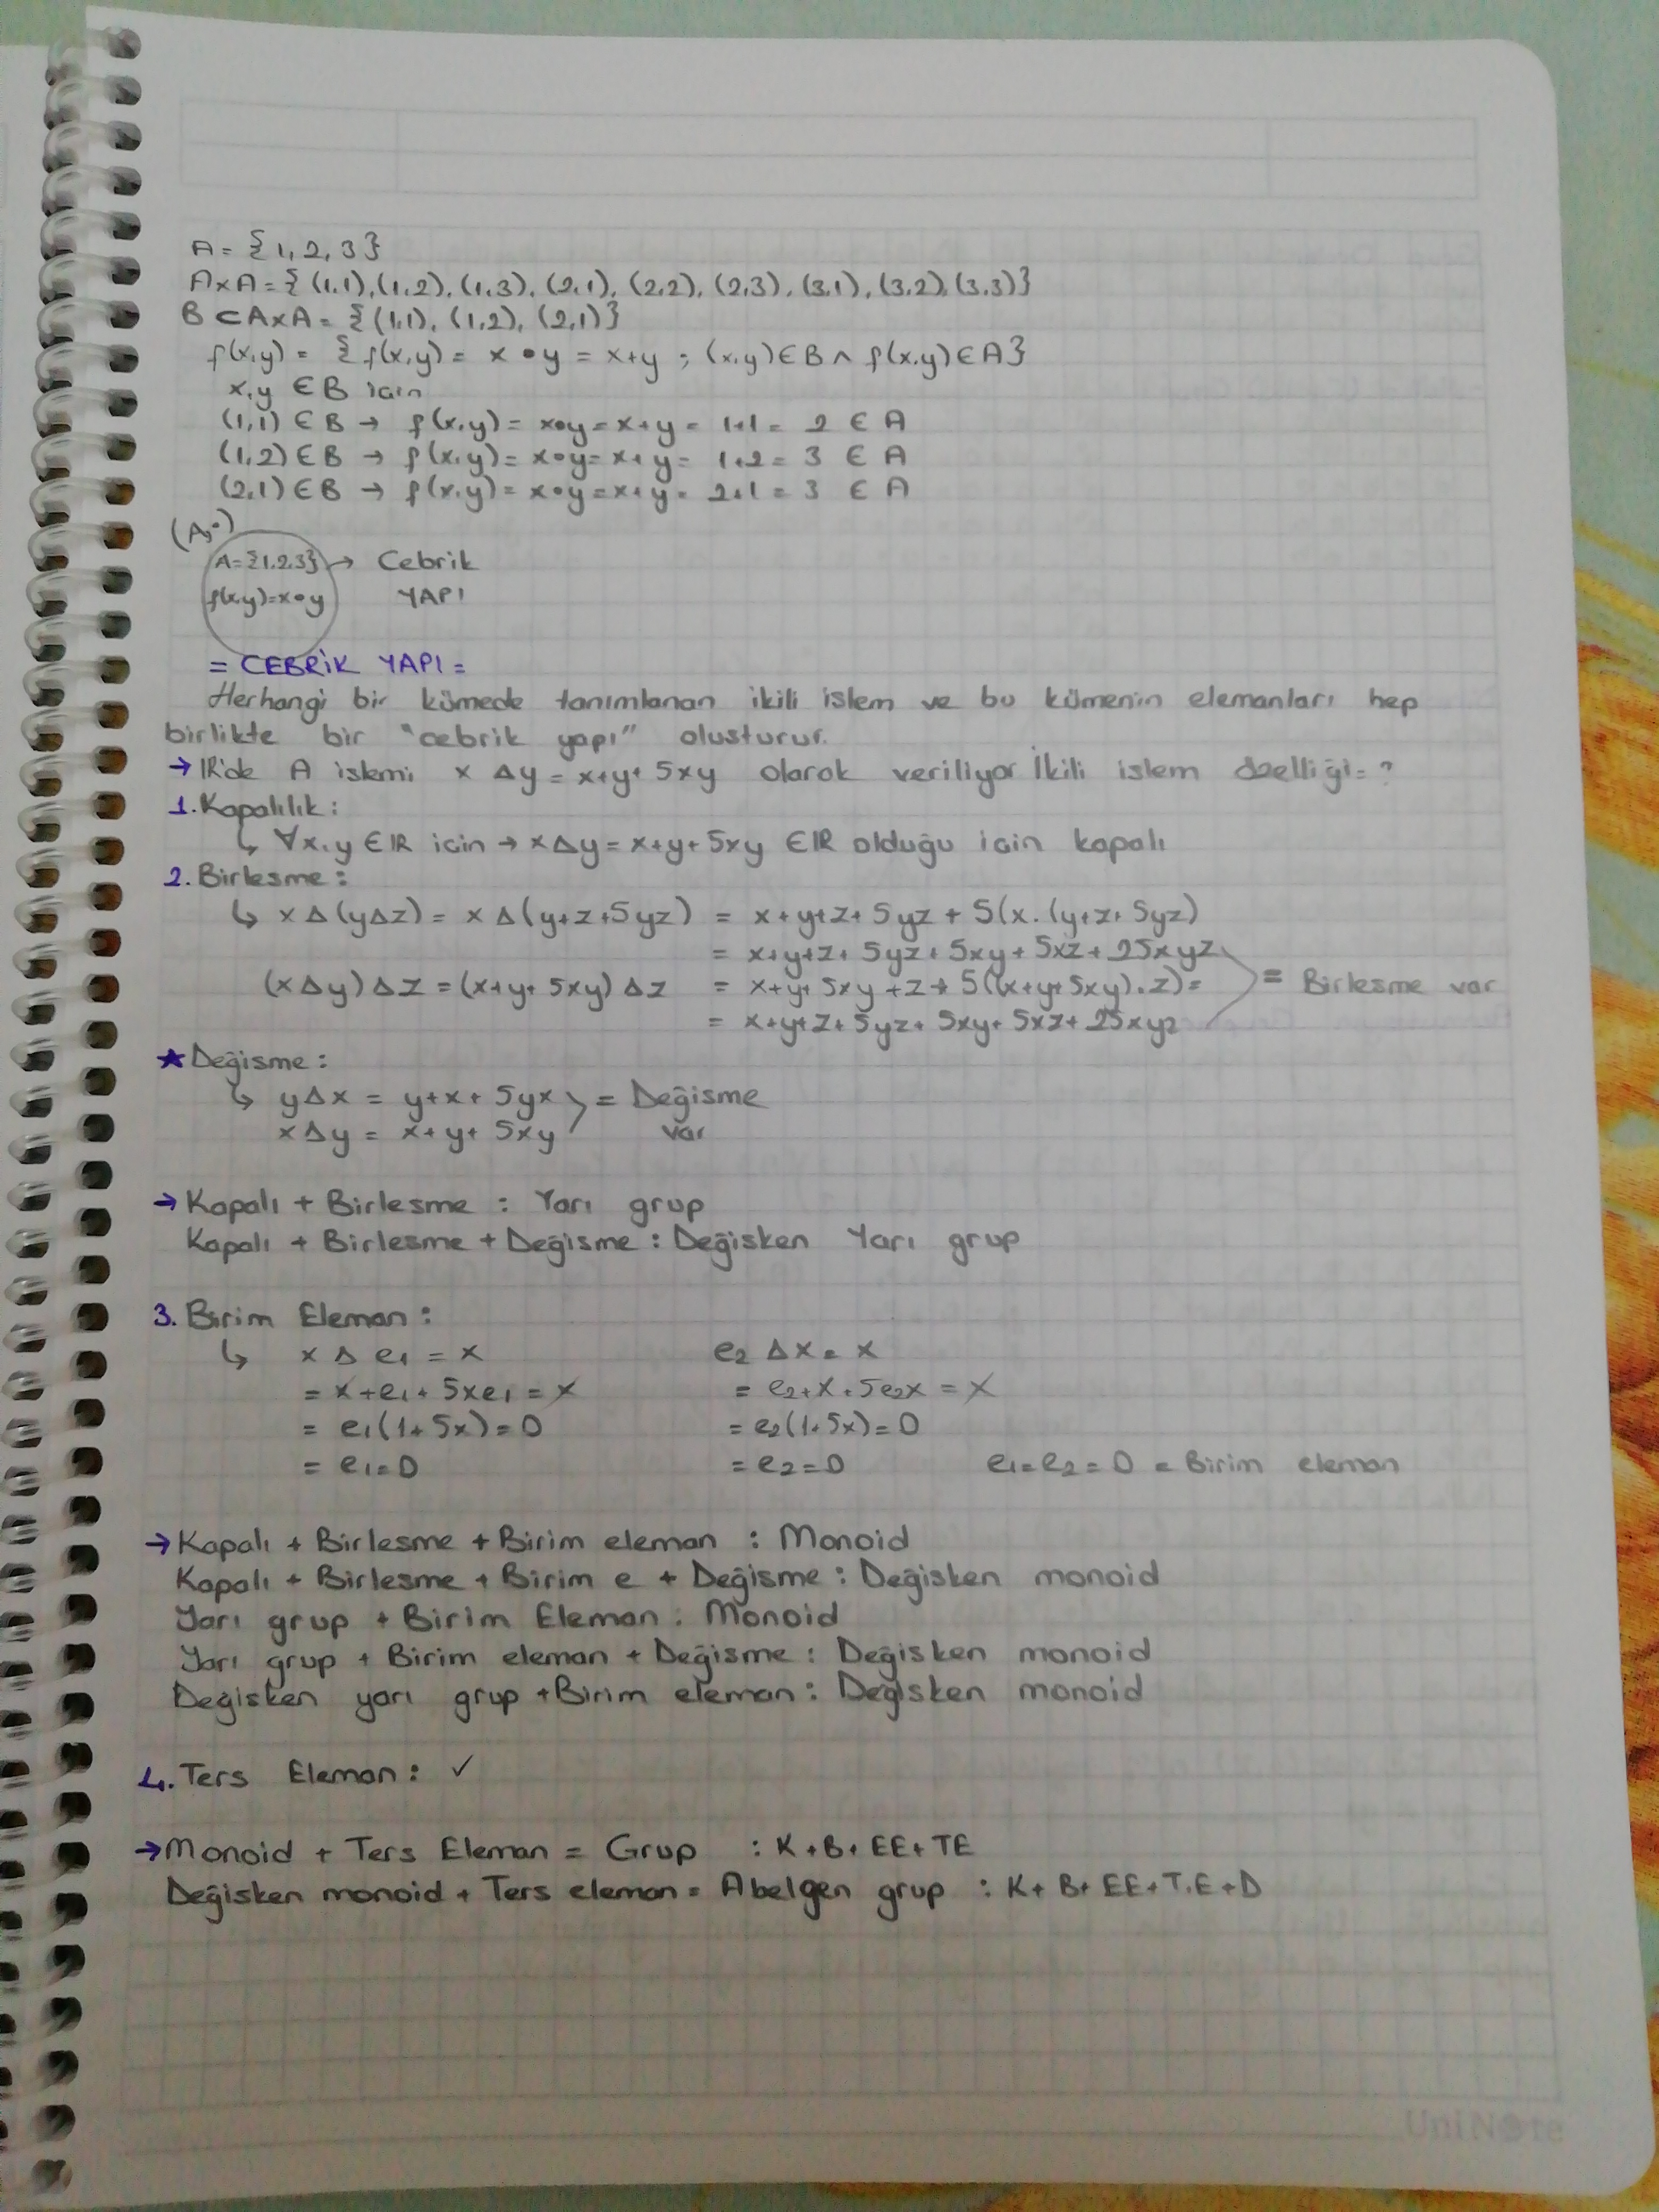 A = {1, 2, 3}
AxA = { (1,1), (1,2), (1,3), (2,1), (2,2), (2,3), (3,1), (3,2), (3,3)}
B ⊂ AxA = {(1,1), (1,2), (2,1)}
f(x,y) = { f(x,y) = x • y = x+y ; (x,y) ∈ B ∧ f(x,y) ∈ A}
x,y ∈ B icin
(1,1) ∈ B → f(x,y) = x•y = x+y = 1+1 = 2 ∈ A
(1,2) ∈ B → f(x,y) = x•y = x+y = 1+2 = 3 ∈ A
(2,1) ∈ B → f(x,y) = x•y = x+y = 2+1 = 3 ∈ A
(A,•)
A={1,2,3} → Cebrik
f(x,y)=x•y YAPI
= CEBRİK YAPI =
Herhangi bir kümede tanımlanan ikili islem ve bu kümenin elemanları hep
birlikte bir "cebrik yapı" olusturur.
→ IR'de Δ islemi x Δy = x+y+ 5xy olarak veriliyor İkili islem özelliği = ?
1. Kapalılık :
↳ ∀x,y ∈ IR icin → xΔy = x+y+ 5xy ∈ IR olduğu icin kapalı
2. Birlesme :
↳ x Δ (yΔz) = x Δ (y+z+5yz) = x+y+z+ 5yz + 5(x.(y+z+ 5yz)
= x+y+z+ 5yz+ 5xy + 5xz + 25xyz
(xΔy)ΔZ = (x+y+ 5xy) ΔZ = x+y+ 5xy +z+ 5((x+y+5xy).z) = = Birlesme var
= x+y+z+ 5yz+ 5xy+ 5xz+ 25xyz
★ Değisme :
↳ yΔx = y+x+ 5yx = Değisme
xΔy = x+y+ 5xy var
→ Kapalı + Birlesme : Yarı grup
Kapalı + Birlesme + Değisme : Değisken Yarı grup
3. Birim Eleman :
↳ x Δ e1 = x e2 Δx = x
= x+e1+ 5xe1 = x = e2+x+5e2x = x
= e1(1+5x) = 0 = e2(1+5x) = 0
= e1=0 = e2=0 e1=e2=0 = Birim eleman
→ Kapalı + Birlesme + Birim eleman : Monoid
Kapalı + Birlesme + Birim e + Değisme : Değisken monoid
Yarı grup + Birim Eleman : Monoid
Yarı grup + Birim eleman + Değisme : Değisken monoid
Değisken yarı grup + Birim eleman : Değisken monoid
4. Ters Eleman : ✓
→ Monoid + Ters Eleman = Grup : K+B+EE+TE
Değisken monoid + Ters eleman = Abelgen grup : K+ B+ EE+T.E+D
UniNote